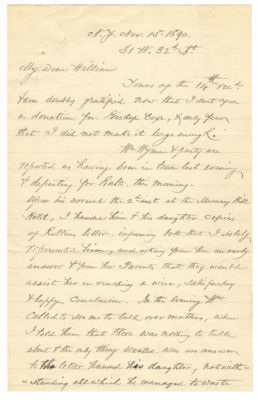 N.Y. Nov. 15th 1890.
31 W. 32d St.
My Dear William
Yours of the 14th rec'd
I am doubly gratified now that I sent you
a donation for Bishop & only fear
that I did not make it large enough.
Mr Wyman & party are
reported as having been in town last evening
& departing for Balto. this morning.
Upon his arrival the 2d inst at the Murray Hill
Hotel, I handed him & his daughter copies
of Rollins letter, informing both that I solely
represented him, and asking for an early
answer & from her Parents that they would
assist her in reaching a wise, satisfactory
& happy Conclusion. In the evening Mr
Called to see me to talk over matters, when
I told him that there was nothing to talk
about & the only thing wanted was an answer
to the letter handed his daughter, notwith-
standing all which he managed to waste